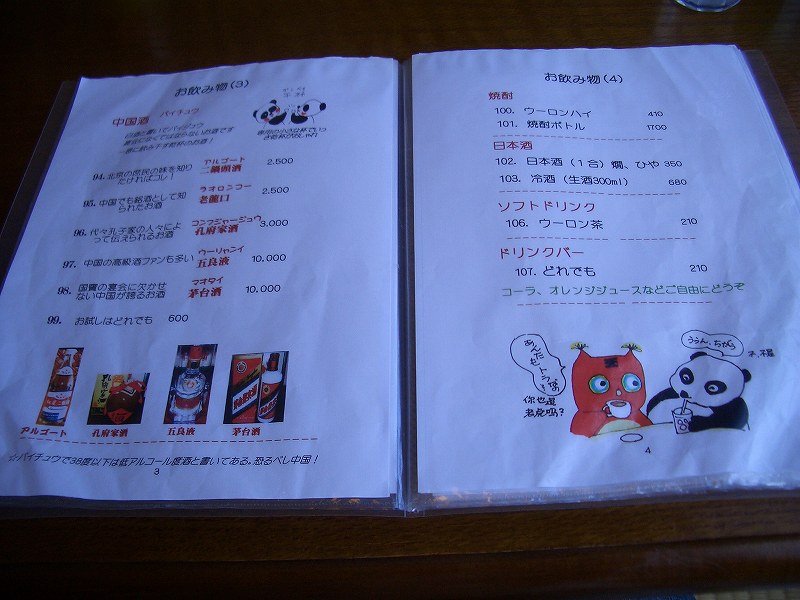 お飲み物(3)
中国酒 パイチュウ
白酒と書いてパイジュウ
専用の小さな杯でいっ
き乾杯がおしゃれ
アルゴート
94. 北京の庶民の味を知り 二鍋頭酒 2.500
たければコレ!
ラオロンコー
95. 中国でも銘酒として知 老龍口 2.500
られたお酒
コンフジャージュウ
96. 代々孔子家の人々によ 孔府家酒 3.000
って伝えられるお酒
ウーリャンイ
97. 中国の高級酒ファンも多い 五良液 10.000
マオタイ
98. 国賓の宴会に欠かせ 茅台酒 10.000
ない中国が誇るお酒
99. お試しはどれでも 600
アルゴート 孔府家酒 五良液 茅台酒
☆パイチュウで38度以下は低アルコール度酒と書いてある。恐るべし中国!
3
お飲み物(4)
焼酎
100. ウーロンハイ 410
101. 焼酎ボトル 1700
日本酒
102. 日本酒(1合)燗、ひや 350
103. 冷酒(生酒300ml) 680
ソフトドリンク
106. ウーロン茶 210
ドリンクバー
107. どれでも 210
コーラ、オレンジジュースなどご自由にどうぞ
あんた
もトラなの
你也是
老虎吗?
ううん、ちがう
不,不是
4